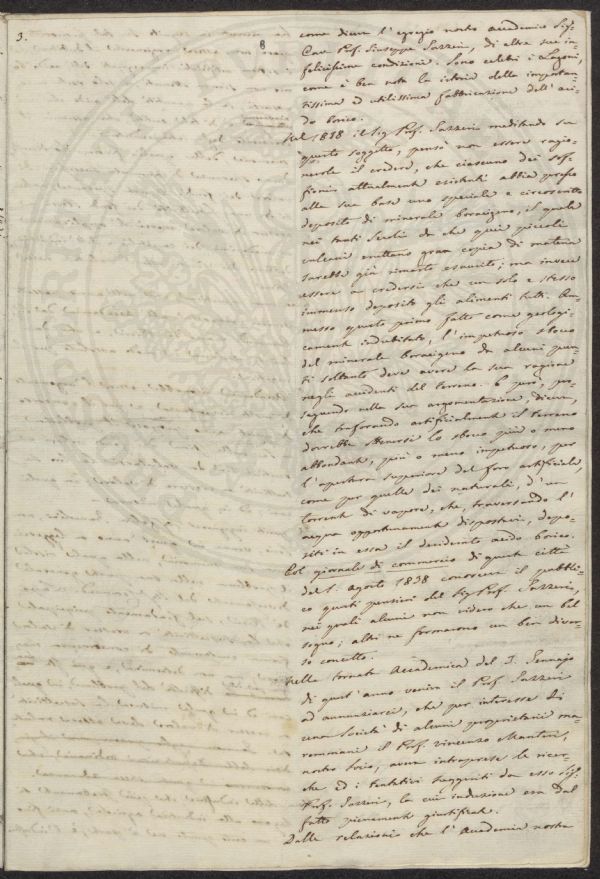 3.
8
come dicea l'egregio nostro accademico Sig.
Cav. Prof. Giuseppe Gazzeri, di altre sue in-
felicissime condizioni. Sono celebri i Lagoni,
come è ben nota la istoria della importan-
tissima ed utilissima fabbricazione dell'aci-
do borico.
Nel 1838 il Sig. Prof. Gazzeri meditando su
questo soggetto, pensò non essere ragio-
nevole il credere, che ciascuno dei sof-
fioni attualmente esistenti abbia presso
alla sua base uno speciale e circoscritto
deposito di minerale boracigeno, il quale
nei tanti secoli da che quei piccoli
vulcani eruttano gran copia di materia
sarebbe già rimasto esaurito; ma invece
essere a credersi che un solo e stesso
immenso deposito gli alimenti tutti. Am-
messo questo primo fatto come geologi-
camente indubitato, l'impetuoso sbocco
del minerale boracigeno da alcuni pun-
ti soltanto deve avere la sua ragione
negli accidenti del terreno. E però, pro-
seguendo nella sua argomentazione, dicea,
che traforando artificialmente il terreno
dovrebbe ottenersi lo sbocco più o meno
abbondante, più o meno impetuoso, per
l'apertura superiore del foro artificiale,
come per quelle dei naturali, d'un
torrente di vapore, che, traversando l'
acqua opportunamente disposta, depo-
siti in essa il desiderato acido borico.
Col giornale di commercio di questa città
del 1. Agosto 1838 conosceva il pubbli-
co questi pensieri del Sig. Prof. Gazzeri,
nei quali alcuni non videro che un bel
sogno; altri ne formarono un ben diver-
so concetto.
Nella tornata Accademica del 3. Gennajo
di quest'anno veniva il Prof. Gazzeri
ad annunziarci, che per interesse di
una Società di alcuni proprietarii ma-
remmani il Prof. Vincenzo Manteri,
nostro Socio, aveva intraprese le ricer-
che ed i tentativi suggeriti da esso Sig.
Prof. Gazzeri, la cui induzione era dal
fatto pienamente giustificata.
Dalle relazioni che l'Accademia nostra